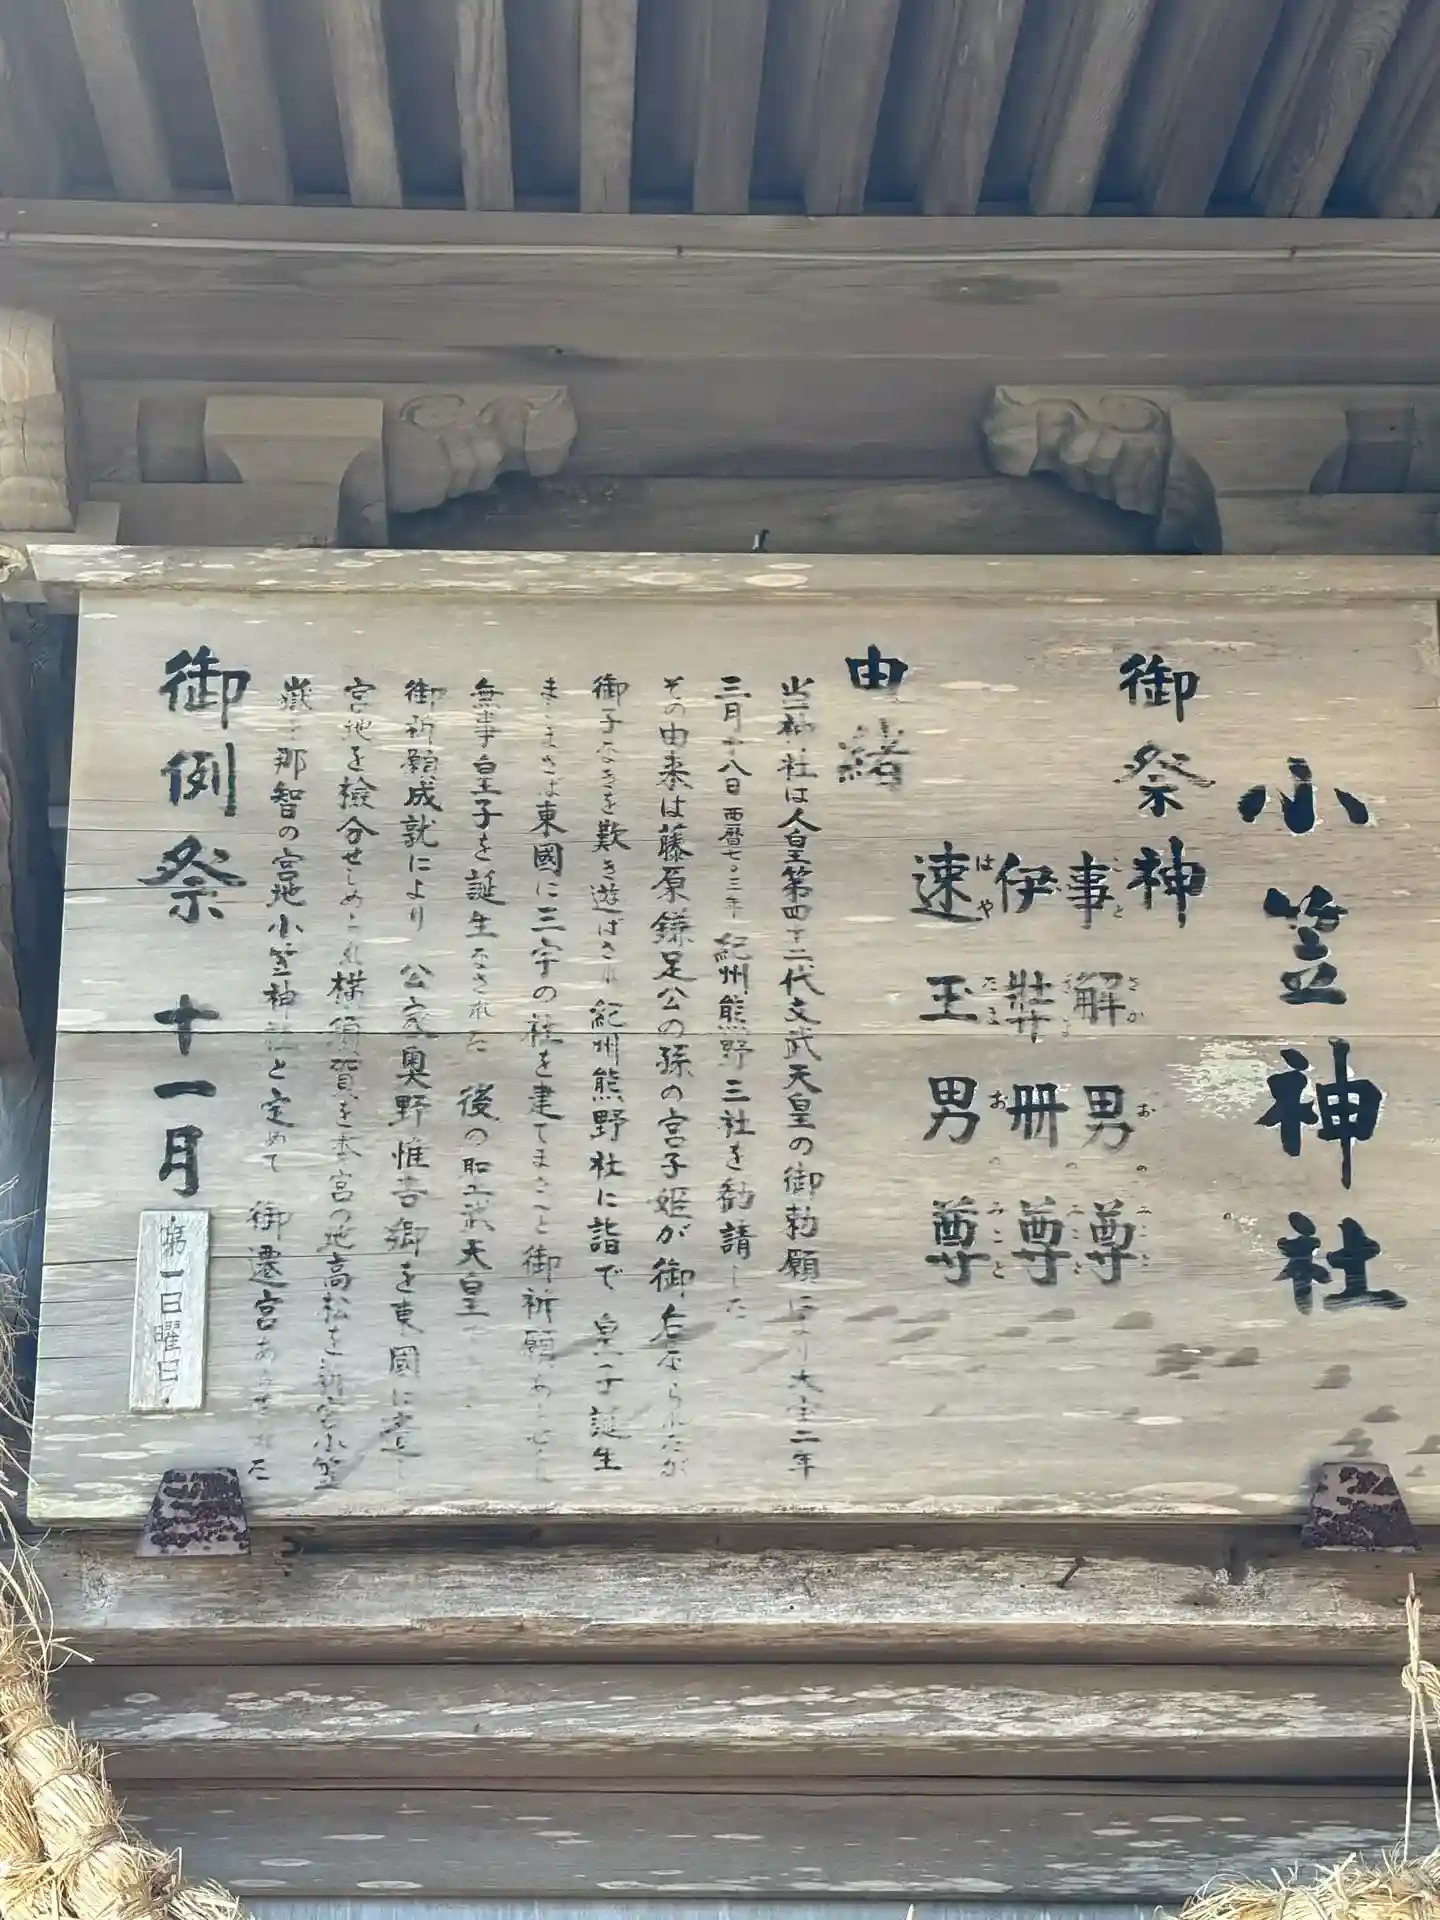 小笠神社
御祭神
事解男尊
ことさかおのみこと
伊弉冊尊
速玉男尊
はやたまおのみこと
由緒
当神社は人皇第四十二代文武天皇の御勅願により大宝二年
三月十八日西暦七〇三年紀州熊野三社を勧請した
その由来は藤原鎌足公の孫の宮子姫が御后なられたが
御子なきを歎き遊ばされ紀州熊野社に詣で皇子誕生
ましまさば東國に三宇の社を建てまさんと御祈願あらせし
無事皇子を誕生なされた 後の聖武天皇
御祈願成就により 公家奥野惟吉卿を東國に遣し
宮地を検分せしめられ横須賀を本宮の地高松を新宮小笠
嶽を那智の宮地小笠神社と定めて 御遷宮あらせれた
御例祭 十一月
第一日曜日